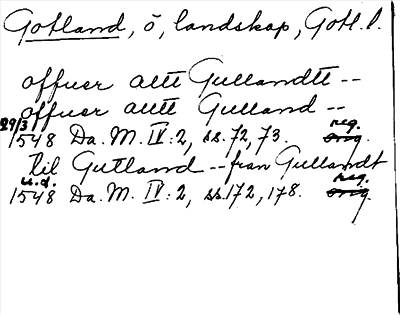 Gotland, ö, landskap, Gotl. l.
offuer altt Gullandtt --
offuer altt Gulland --
29/3 reg.
1548 Da. M. IV: 2, ss. 72, 73. orig.
til Gutland -- från Gullandt
u.d. reg.
1548 Da. M. IV: 2, ss. 172, 178. orig.